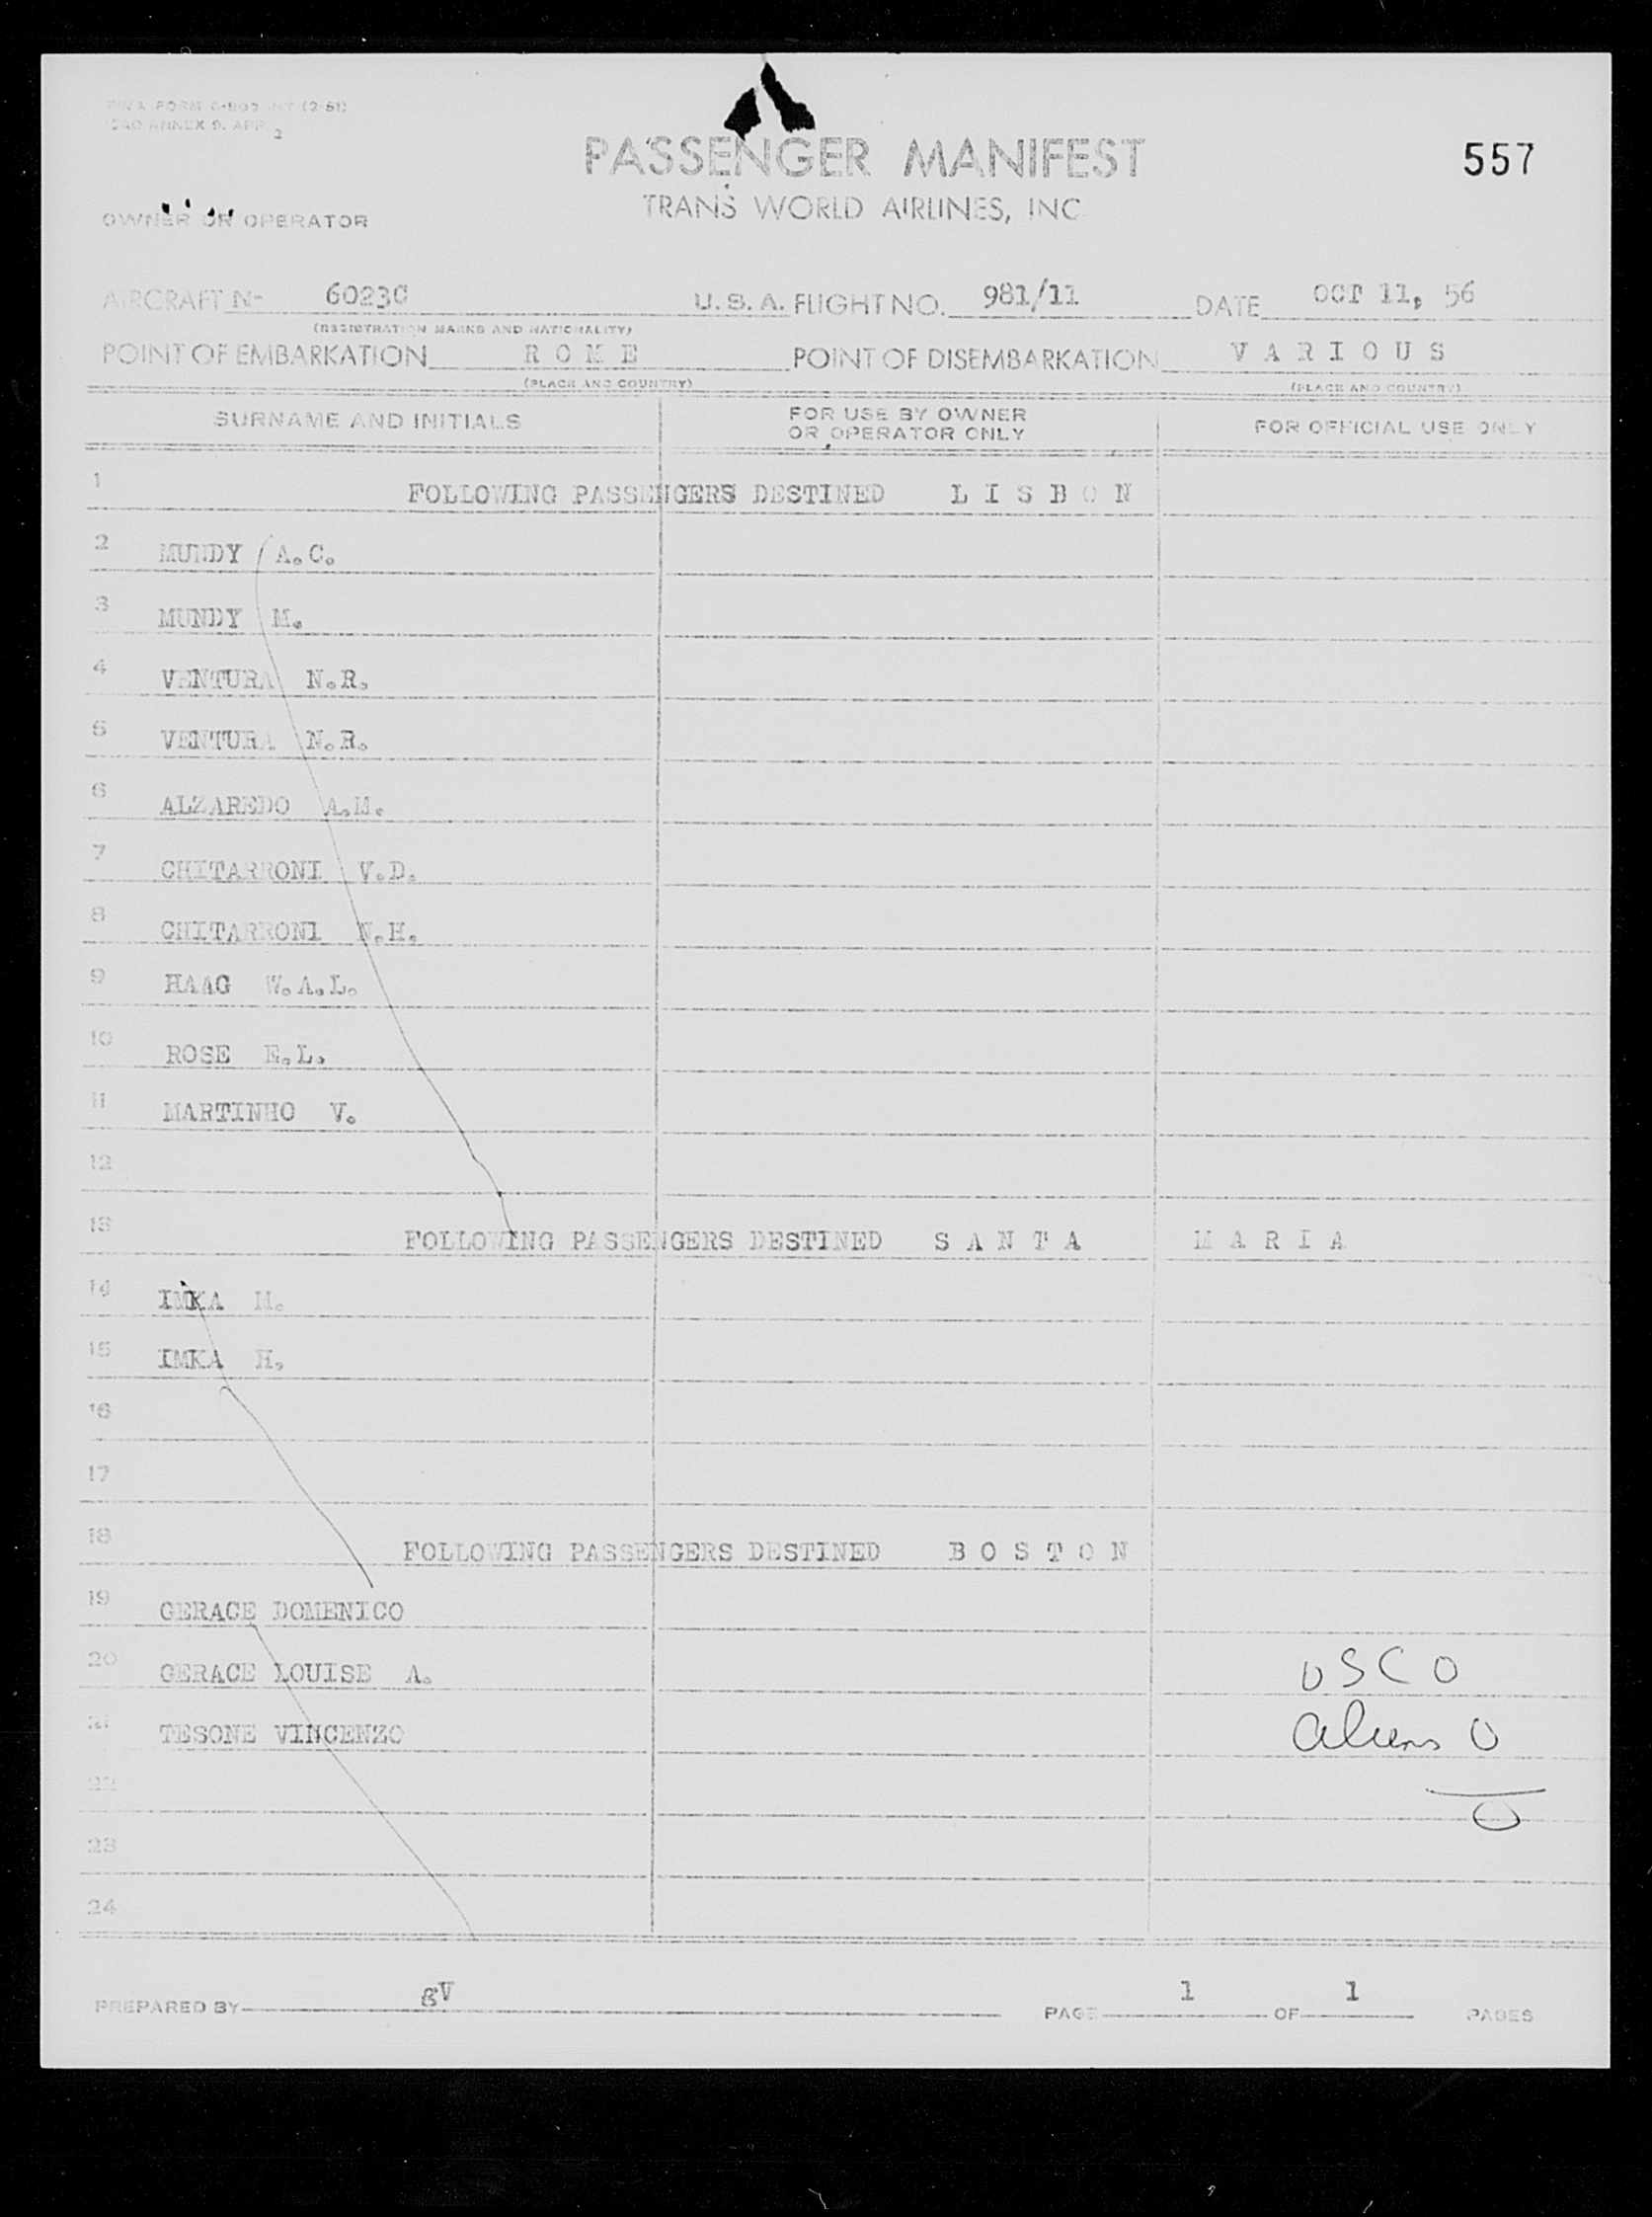 TWA FORM (2-51)
ICAO ANNEX 9, APP 2
PASSENGER MANIFEST
557
TRANS WORLD AIRLINES, INC
OWNER OR OPERATOR
AIRCRAFT N- 6023C U.S.A. FLIGHT NO. 981/11 DATE OCT 11, 56
(REGISTRATION MARKS AND NATIONALITY)
POINT OF EMBARKATION R O M E POINT OF DISEMBARKATION V A R I O U S
(PLACE AND COUNTRY) (PLACE AND COUNTRY)
SURNAME AND INITIALS FOR USE BY OWNER OR OPERATOR ONLY FOR OFFICIAL USE ONLY
1 FOLLOWING PASSENGERS DESTINED L I S B O N
2 MUNDY A.C.
3 MUNDY M.
4 VENTURA N.R.
5 VENTURA N.R.
6 ALZAREDO A.M.
7 CHITARRONI V.D.
8 CHITARRONI .H.
9 HAAG W.A.L.
10 ROSE E.L.
11 MARTINHO V.
12
13 FOLLOWING PASSENGERS DESTINED S A N T A M A R I A
14 IMKA M.
15 IMKA H.
16
17
18 FOLLOWING PASSENGERS DESTINED B O S T O N
19 GERACE DOMENICO
20 GERACE LOUISE A. USC 0
21 TESONE VINCENZO aliens 0
22 0
23
24
PREPARED BY gV PAGE 1 OF 1 PAGES